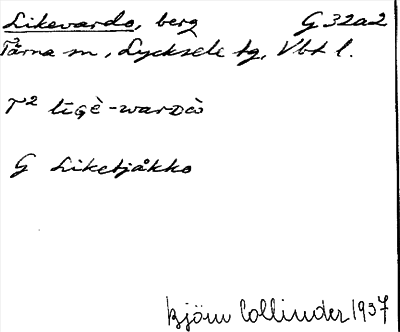 Likevardo, berg G 32a2
Tärna sn, Lycksele tg, Vbt l.
T² līGè-warDò
G Liketjåkko
Björn Collinder 1937